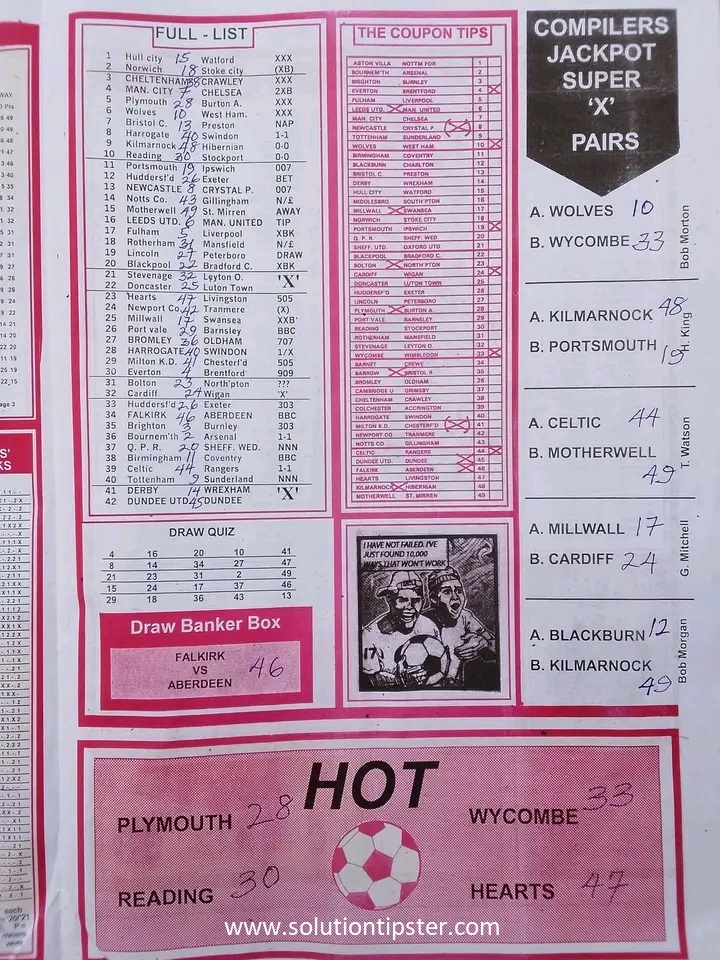 FULL - LIST
1 Hull city 15 Watford XXX
2 Norwich 18 Stoke city (XB)
3 CHELTENHAM 38 CRAWLEY XXX
4 MAN. CITY 7 CHELSEA 2XB
5 Plymouth 28 Burton A. XXX
6 Wolves 10 West Ham. XXX
7 Bristol C. 13 Preston NAP
8 Harrogate 40 Swindon 1-1
9 Kilmarnock 48 Hibernian 0-0
10 Reading 30 Stockport 0-0
11 Portsmouth 19 Ipswich 007
12 Huddersf'd 26 Exeter BET
13 NEWCASTLE 8 CRYSTAL P. 007
14 Notts Co. 43 Gillingham N/£
15 Motherwell 49 St. Mirren AWAY
16 LEEDS UTD. 6 MAN. UNITED TIP
17 Fulham 5 Liverpool XBK
18 Rotherham 31 Mansfield N/£
19 Lincoln 27 Peterboro DRAW
20 Blackpool 22 Bradford C. XBK
21 Stevenage 32 Leyton O. 'X'
22 Doncaster 25 Luton Town
23 Hearts 47 Livingston 505
24 Newport Co. 42 Tranmere (X)
25 Millwall 17 Swansea XXB'
26 Port vale 29 Barnsley BBC
27 BROMLEY 36 OLDHAM 707
28 HARROGATE 40 SWINDON 1/X
29 Milton K.D. 41 Chesterf'd 505
30 Everton 4 Brentford 909
31 Bolton 23 North'pton ???
32 Cardiff 24 Wigan 'X'
33 Huddersf'd 26 Exeter 303
34 FALKIRK 46 ABERDEEN BBC
35 Brighton 3 Burnley 303
36 Bournem'th 2 Arsenal 1-1
37 Q. P. R. 20 SHEFF. WED. NNN
38 Birmingham 11 Coventry BBC
39 Celtic 44 Rangers 1-1
40 Tottenham 9 Sunderland NNN
41 DERBY 14 WREXHAM 'X'
42 DUNDEE UTD 45 DUNDEE
DRAW QUIZ
4 16 20 10 41
8 14 34 27 47
21 23 31 2 49
15 24 17 37 46
29 18 36 43 13
Draw Banker Box
FALKIRK
VS 46
ABERDEEN
THE COUPON TIPS
ASTON VILLA NOTTM FOR 1
BOURNEM'TH ARSENAL 2
BRIGHTON BURNLEY 3
EVERTON BRENTFORD 4 X
FULHAM LIVERPOOL 5
LEEDS UTD. X MAN. UNITED 6
MAN. CITY CHELSEA 7
NEWCASTLE CRYSTAL P. (X) 8
TOTTENHAM SUNDERLAND 9
WOLVES WEST HAM 10 X
BIRMINGHAM COVENTRY 11
BLACKBURN CHARLTON 12
BRISTOL C. PRESTON 13
DERBY WREXHAM 14
HULL CITY WATFORD 15
MIDDLESBRO SOUTH'PTON 16
MILLWALL X SWANSEA 17
NORWICH STOKE CITY 18
PORTSMOUTH IPSWICH 19 X
Q. P. R. SHEFF. WED. 20
SHEFF. UTD OXFORD UTD 21
BLACKPOOL BRADFORD C. 22
BOLTON X NORTH'PTON 23
CARDIFF WIGAN 24 X
DONCASTER LUTON TOWN 25
HUDDERSF'D EXETER 26
LINCOLN PETERBORO 27
PLYMOUTH X BURTON A. 28
PORT VALE BARNSLEY 29
READING STOCKPORT 30
ROTHERHAM MANSFIELD 31
STEVENAGE LEYTON O. 32
WYCOMBE WIMBLEDON 33 X
BARNET CREWE 34
BARROW X BRISTOL R. 35
BROMLEY OLDHAM 36
CAMBRIDGE U GRIMSBY 37
CHELTENHAM CRAWLEY 38
COLCHESTER ACCRINGTON 39
HARROGATE SWINDON 40
MILTON K.D. CHESTERF'D (X) 41
NEWPORT CO. TRANMERE 42
NOTTS CO GILLINGHAM 43
CELTIC RANGERS 44 X
DUNDEE UTD. DUNDEE X 45
FALKIRK ABERDEEN X 46
HEARTS LIVINGSTON 47
KILMARNOCK X HIBERNIAN 48
MOTHERWELL ST. MIRREN 49
I HAVE NOT FAILED. I'VE
JUST FOUND 10,000
WAYS THAT WON'T WORK
17
COMPILERS
JACKPOT
SUPER
'X'
PAIRS
A. WOLVES 10
B. WYCOMBE 33
Bob Morton
A. KILMARNOCK 48
B. PORTSMOUTH 19
H. King
A. CELTIC 44
B. MOTHERWELL
49
T. Watson
A. MILLWALL 17
B. CARDIFF 24
G. Mitchell
A. BLACKBURN 12
B. KILMARNOCK
49
Bob Morgan
HOT
PLYMOUTH 28
WYCOMBE 33
READING 30
HEARTS 47
www.solutiontipster.com